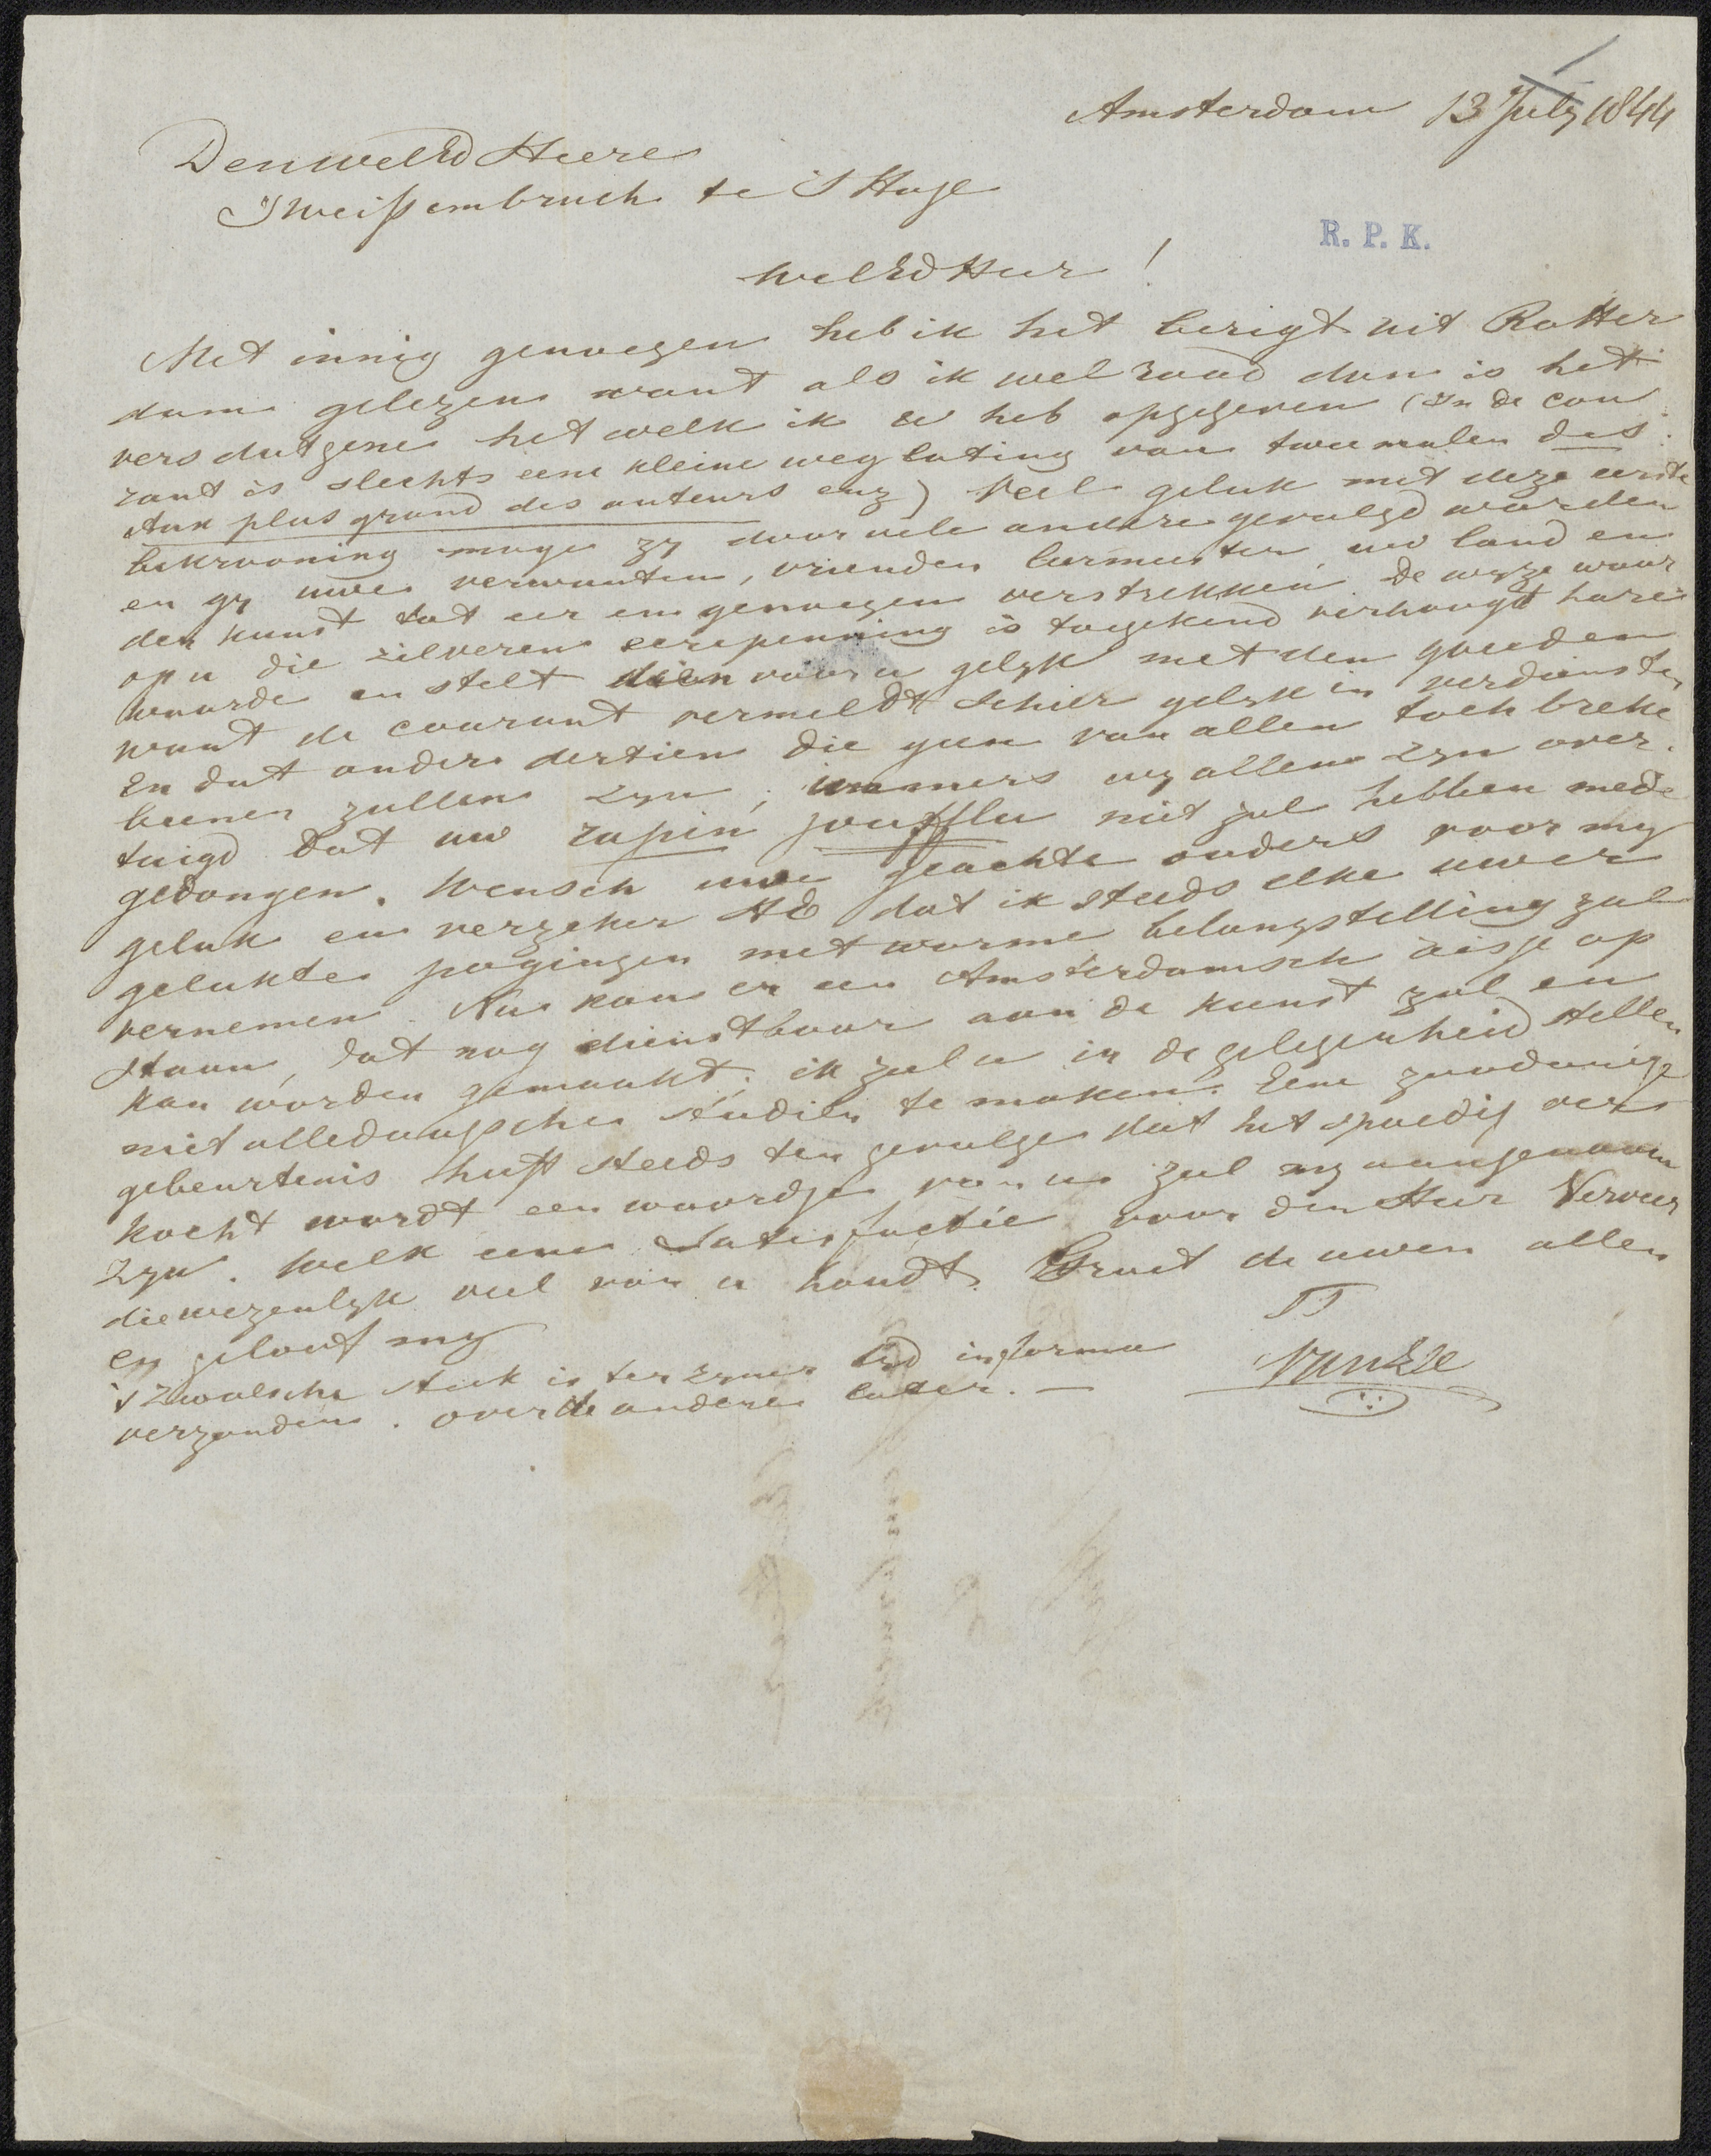 Amsterdam 13 July 1844
Den WelEd Heere
J Weissembruch te S Hage
R. P. K.
WelEd Heer!
Met innig genoegen heb ik het berigt uit Rotter
dam gelezen want als ik wel raad dan is het
vers datgene hetwelk ik u heb opgegeven (In de cou
rant is slechts eene kleine weglating van twee malen des
Aux plus grand des auteurs enz) Veel geluk met deze eerste
bekrooning moge zy door vele andere gevolgd worden
en gy uwe verwanten, vrienden leermeester uw land en
den kunst tot eer en genoegen verstrekken De wyze waar
op u die zilveren eerepenning is toegekend verhoogt hare
waarde en stelt dien voor u gelyk met den gouden
want de courant vermeldt schier gelyk in verdiensten
En dat andere dertien die geen van allen toch breke
beenen zullen zyn, immers wy allen zyn over
tuigd dat uw rapin joufflu niet zal hebben mede
gedongen. Wensch uwe geachte ouders voor my
geluk en verzeker HE dat ik steeds elke uwer
gelukte pogingen met warme belangstelling zal
vernemen. Nu kan er een Amsterdamsch aisje op
staan, dat nog dienstbaar aan de kunst zal en
kan worden gemaakt; ik zal u in de gelegenheid stellen
niet alledaagsche studien te maken. Eene zoodanige
gebeurtenis heeft steeds ten gevolge dat het spoedig ver
kocht wordt een woordje van u zal my aangenaam
zyn. Welk eene Satisfactie voor den Heer Verveer
die wezenlyk veel van u houdt. Groet de uwen allen
en geloof my
TT
't Zwolsche stuk is ter zyner tyd in forma
verzonden. over de andere later. —